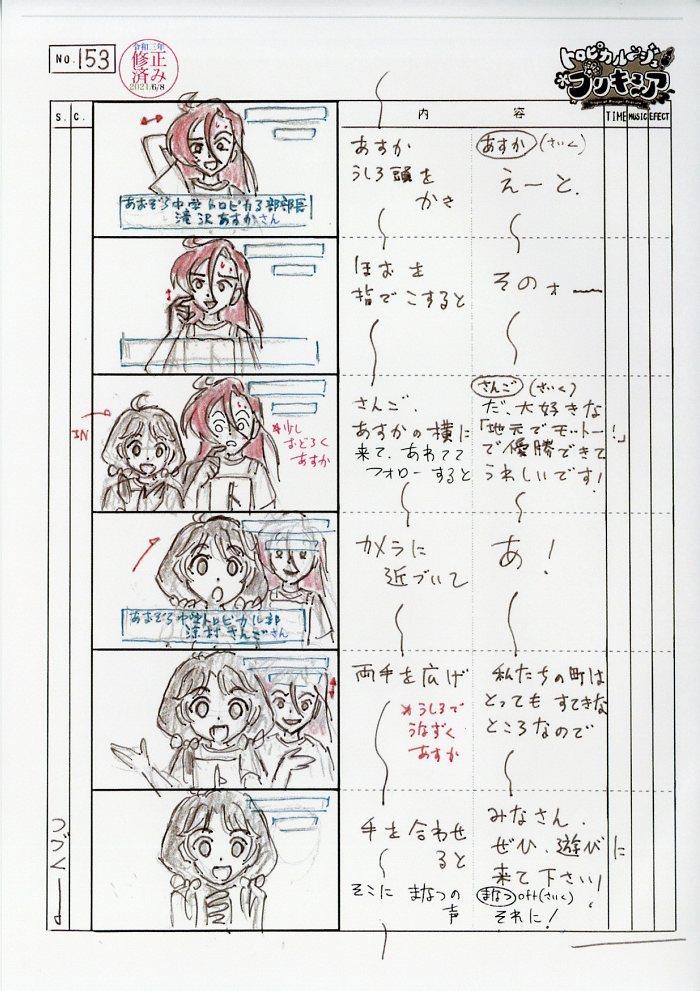 NO. 153
令和三年
修正
済み
2021/6/8
トロピカル〜ジュ
プリキュア
S. C.
内 容
TIME MUSIC EFECT
あすか
うしろ頭を
かき
あすか (さいく)
えーと.
あおぞら中学トロピカる部部長
滝沢 あすかさん
ほおを
指でこすると
そのォー
IN
*少し
おどろく
あすか
さんご.
あすかの横に
来て、あわてて
フォローすると
さんご (さいく)
だ、大好きな
「地元でモットー!」
で優勝できて
うれしいです!
カメラに
近づいて
あ!
あおぞら中学トロピカル部
涼村 さんごさん
両手を広げ
*うしろで
うなずく
あすか
私たちの町は
とっても すてきな
ところなので
手を合わせ
ると
そこに まなつの
声
みなさん、
ぜひ、遊びに
来て下さい!
まなつ off(さいく)
それに!
つづく